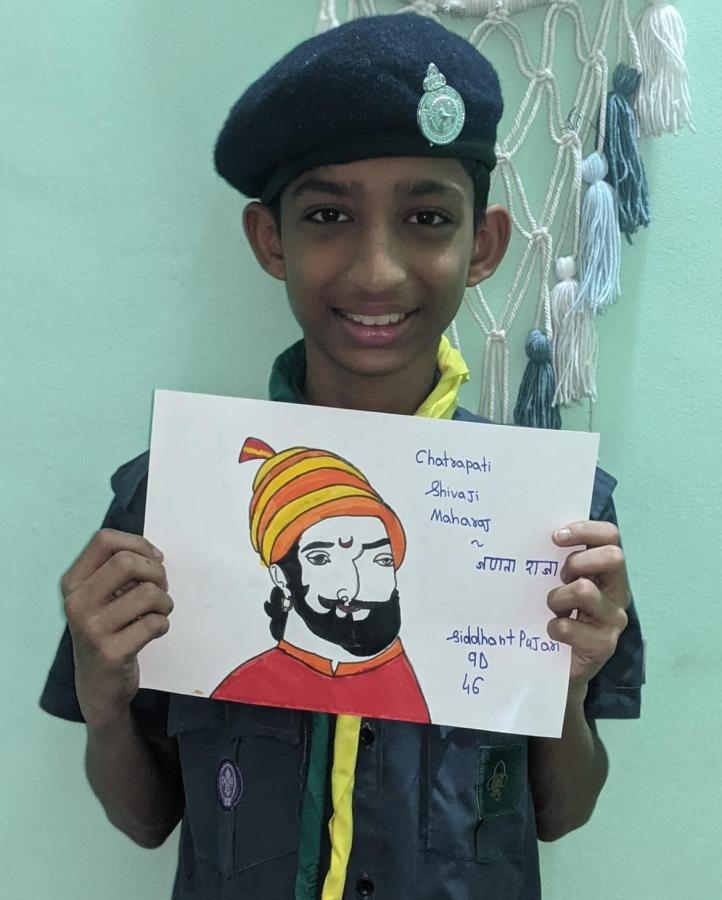 Chatrapati
Shivaji
Maharaj
~
जणता राजा
Siddhant Pujari
9D
46